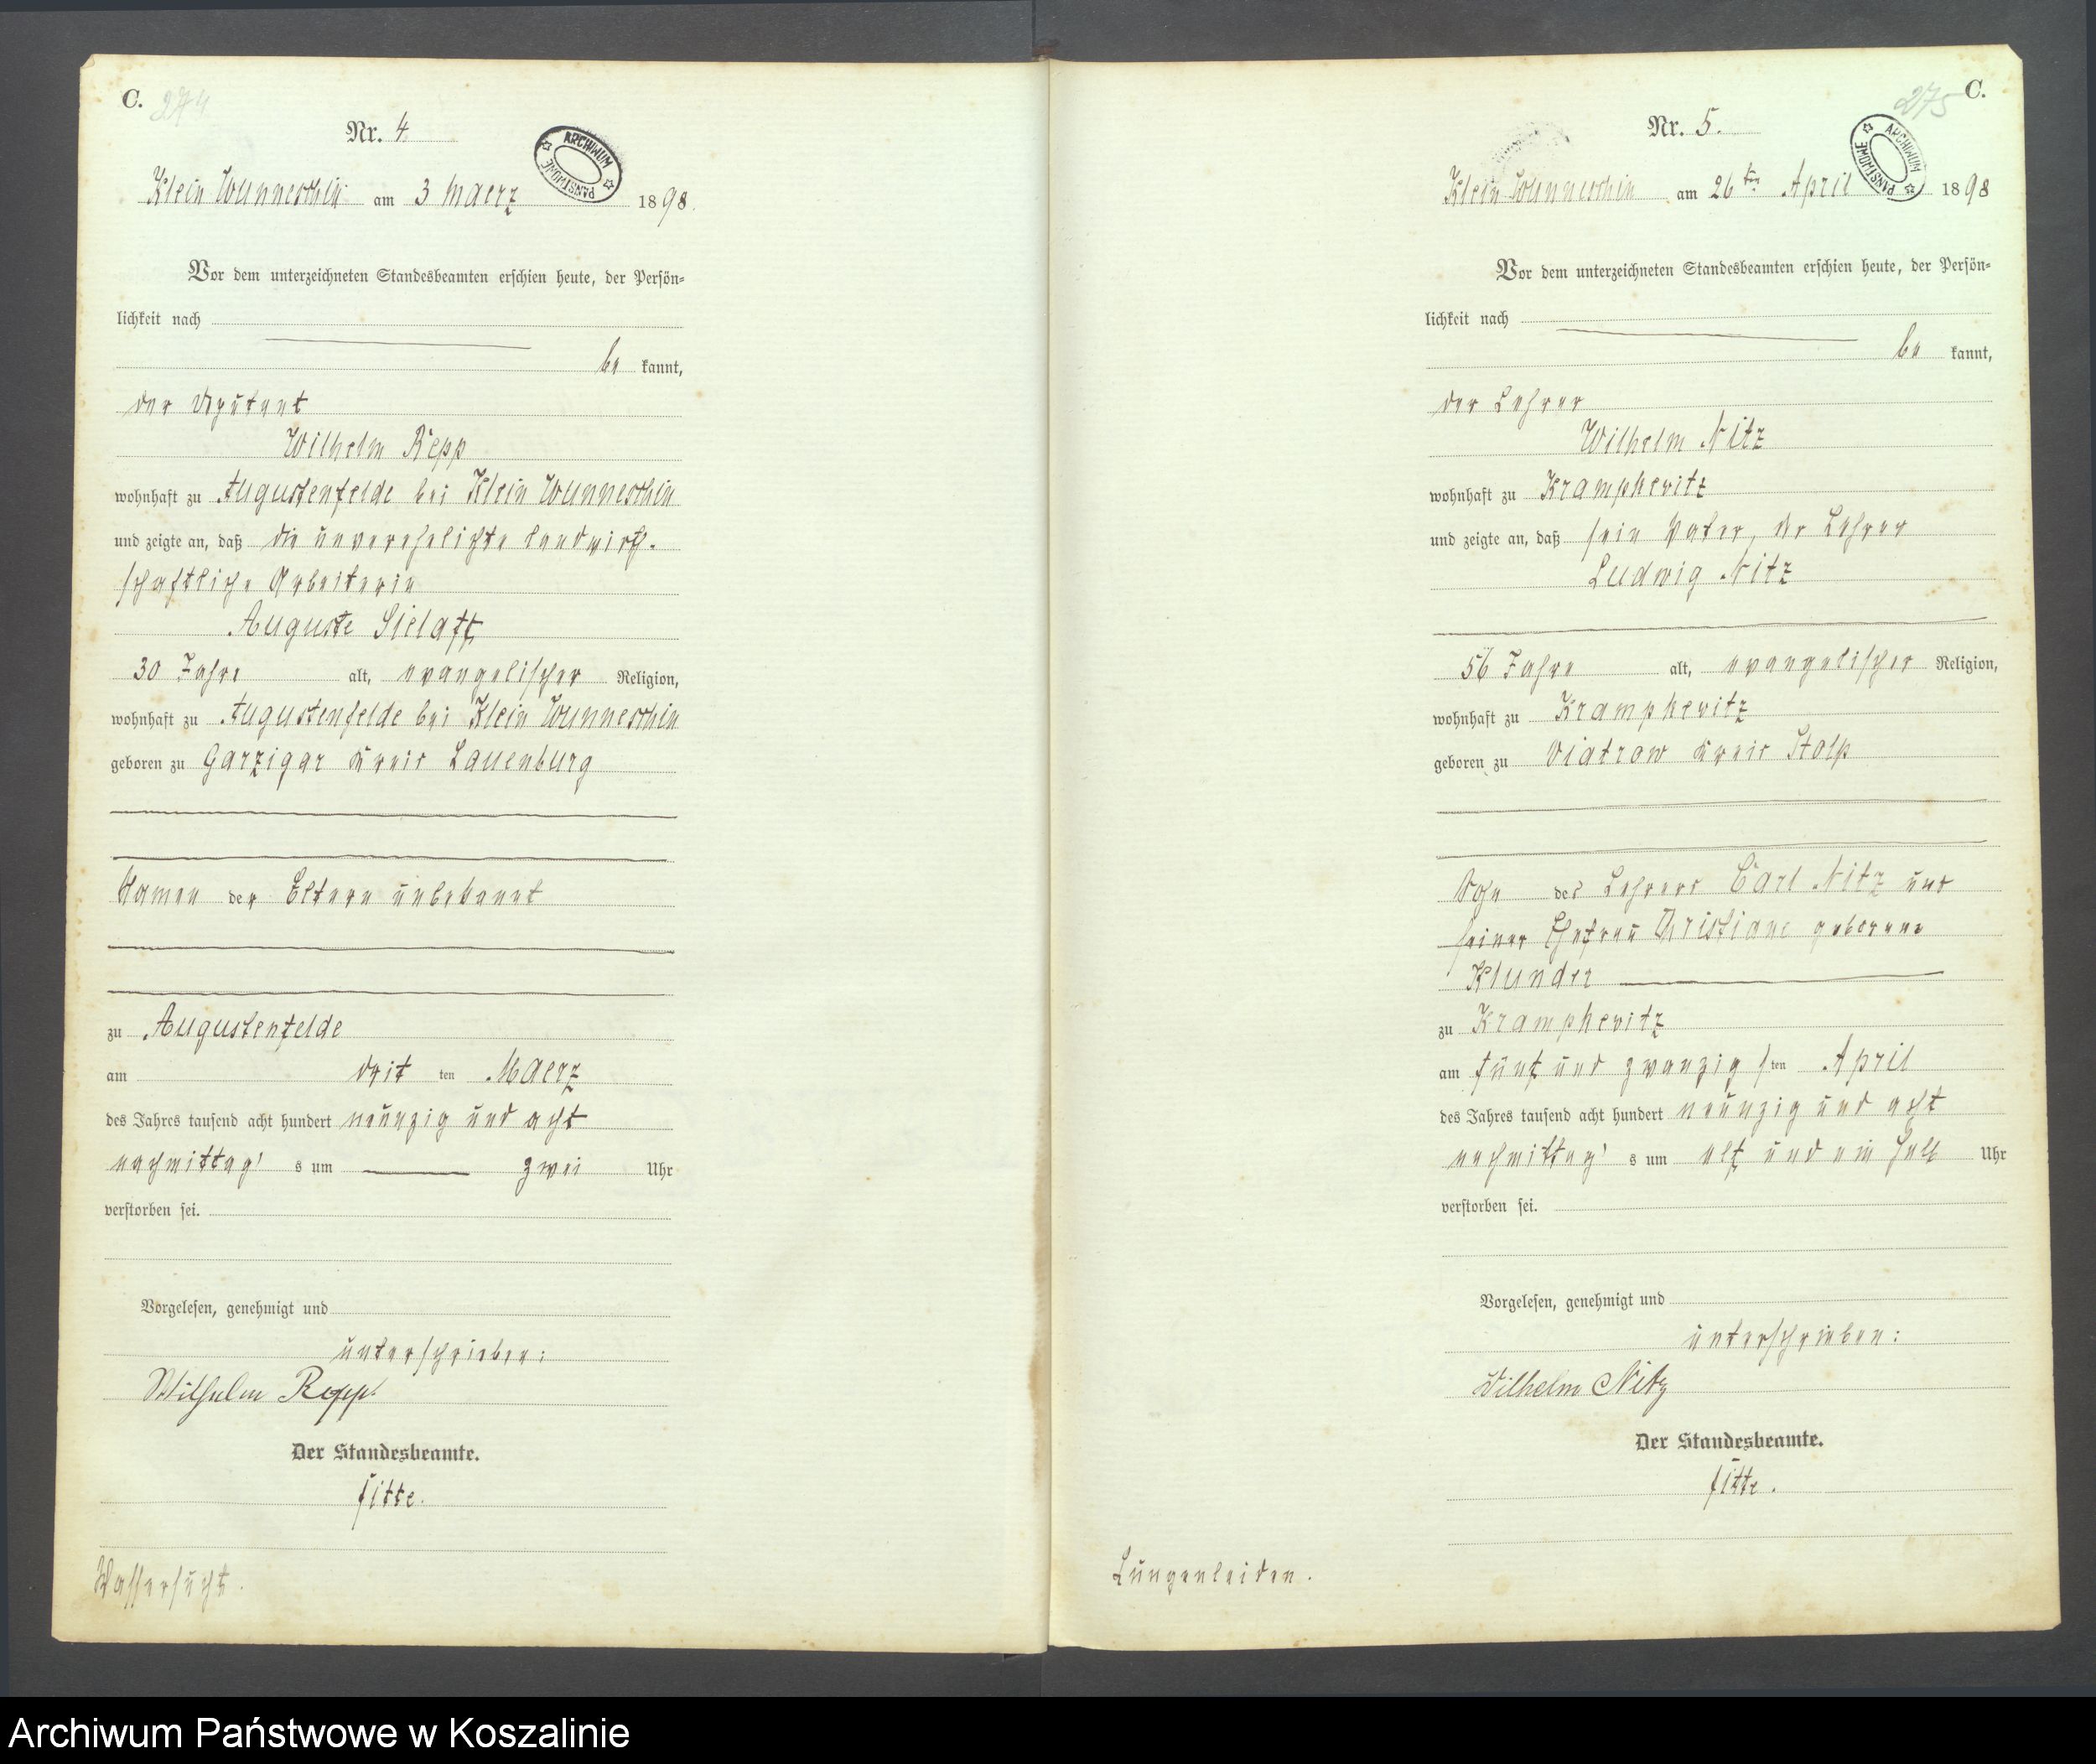 C. 274
Nr. 4.
ARCHIWUM PAŃSTWOWE
Klein Wunneschin am 3 Maerz 1898.
Vor dem unterzeichneten Standesbeamten erschien heute, der Persön-
lichkeit nach
be kannt,
der Deputant
Wilhelm Repp
wohnhaft zu Augustenfelde bei Klein Wunneschin
und zeigte an, daß die unverehelichte landwirth-
schaftliche Arbeiterin
Auguste Sielaff
30 Jahre alt, evangelischer Religion,
wohnhaft zu Augustenfelde bei Klein Wunneschin
geboren zu Garzigar Kreis Lauenburg
Namen der Eltern unbekannt
zu Augustenfelde
am drit ten Maerz
des Jahres tausend acht hundert neunzig und acht
nachmittag's um zwei Uhr
verstorben sei.
Vorgelesen, genehmigt und
unterschrieben:
Wilhelm Repp.
Der Standesbeamte.
Fitte.
Wassersucht.
275 C.
Nr. 5.
ARCHIWUM PAŃSTWOWE
Klein Wunneschin am 26ten April 1898
Vor dem unterzeichneten Standesbeamten erschien heute, der Persön-
lichkeit nach
be kannt,
der Lehrer
Wilhelm Nitz
wohnhaft zu Krampkewitz
und zeigte an, daß sein Vater, der Lehrer
Ludwig Nitz
56 Jahre alt, evangelischer Religion,
wohnhaft zu Krampkewitz
geboren zu Viatrow Kreis Stolp
Sohn des Lehrers Carl Nitz und
seiner Ehefrau Christiane geborene
Klunder
zu Krampkewitz
am fünf und zwanzig sten April
des Jahres tausend acht hundert neunzig und acht
nachmittag's um elf und ein halb Uhr
verstorben sei.
Vorgelesen, genehmigt und
unterschrieben:
Wilhelm Nitz
Der Standesbeamte.
Fitte.
Lungenleiden.
Archiwum Państwowe w Koszalinie